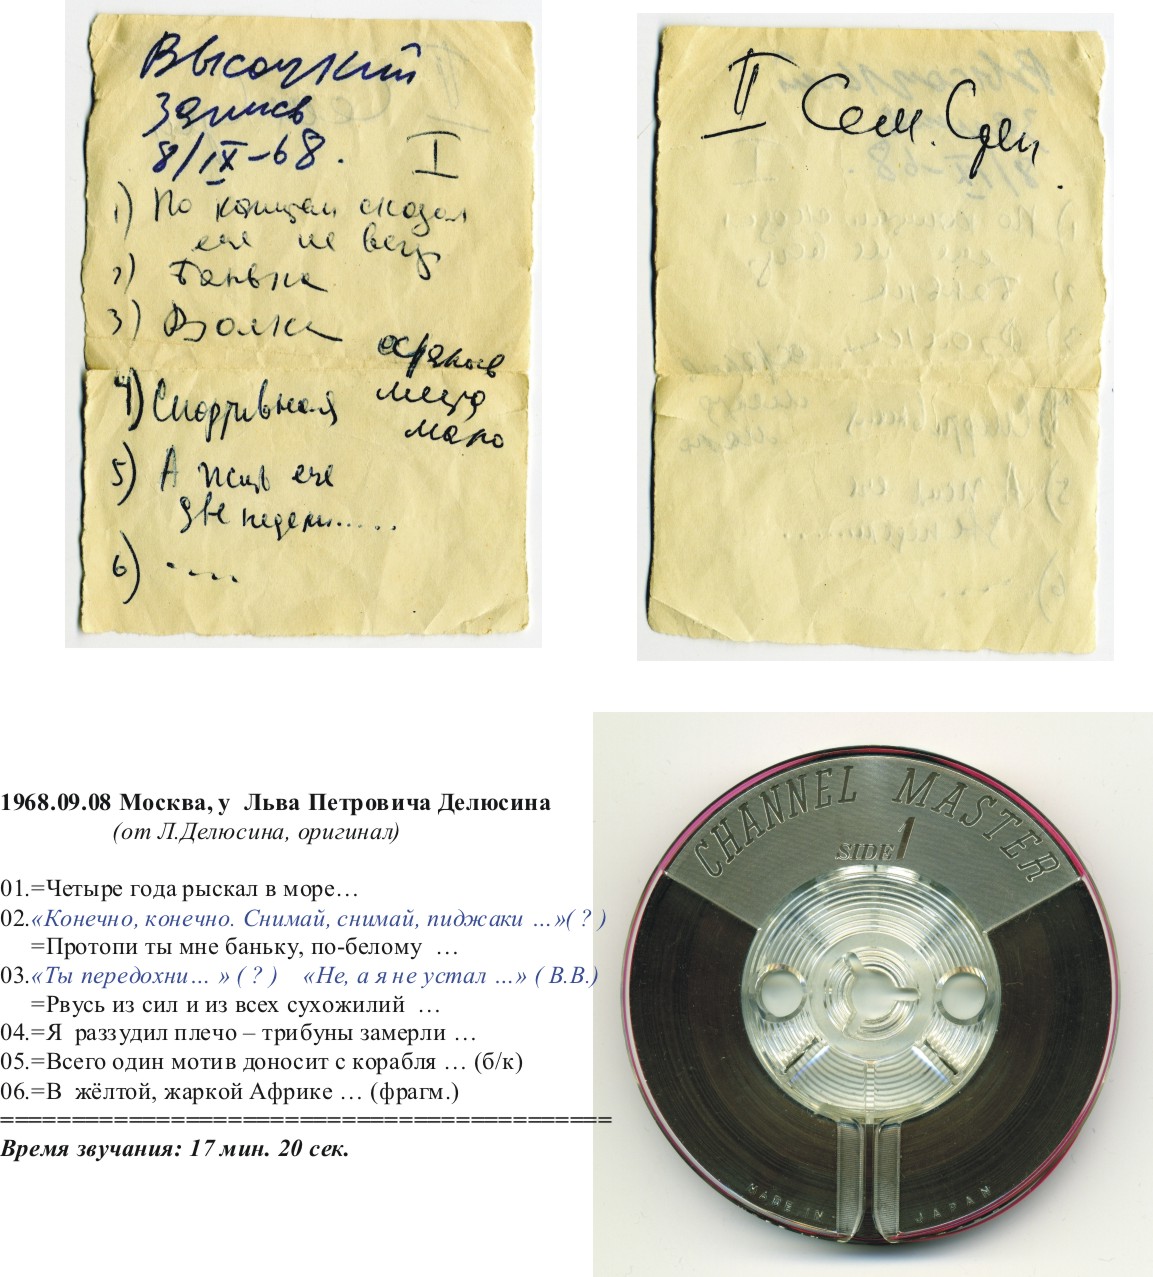 Высоцкий
Запись
8/IX-68.
I
1) По
еще не
2) Банька
3) Волки
4) Спортивная
мало
5) А жить еще
две недели.....
6) ....
II Сем. Сден.
1968.09.08 Москва, у Льва Петровича Делюсина
(от Л.Делюсина, оригинал)
01.=Четыре года рыскал в море…
02.«Конечно, конечно. Снимай, снимай, пиджаки …»( ? )
=Протопи ты мне баньку, по-белому …
03.«Ты передохни… » ( ? ) «Не, а я не устал …» ( В.В.)
=Рвусь из сил и из всех сухожилий …
04.=Я раззудил плечо – трибуны замерли …
05.=Всего один мотив доносит с корабля … (б/к)
06.=В жёлтой, жаркой Африке … (фрагм.)
============================================
Время звучания: 17 мин. 20 сек.
CHANNEL MASTER
SIDE 1
MADE IN JAPAN